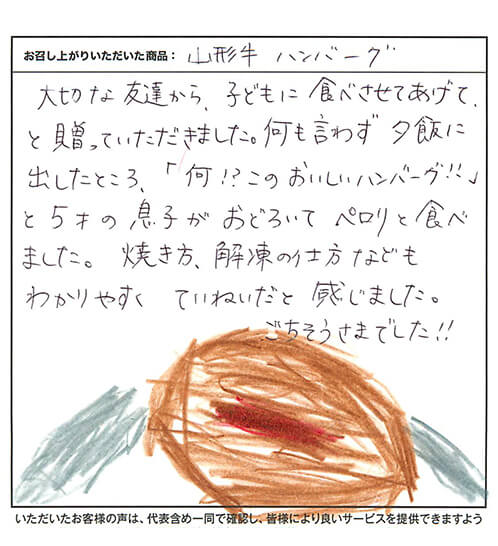 お召し上がりいただいた商品： 山形牛 ハンバーグ
大切な友達から、子どもに食べさせてあげて、
と贈っていただきました。何も言わず 夕飯に
出したところ、「何!?このおいしいハンバーグ!!」
と5才の息子がおどろいて ペロリと食べ
ました。 焼き方、解凍の仕方なども
わかりやすく ていねいだと 感じました。
ごちそうさまでした!!
いただいたお客様の声は、代表含め一同で確認し、皆様により良いサービスを提供できますよう